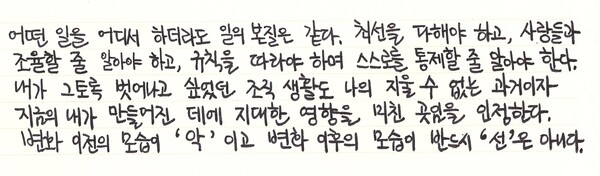 어떤 일을 어디서 하더라도 일의 본질은 같다. 최선을 다해야 하고, 사람들과
조율할 줄 알아야 하고, 규칙을 따라야 하며 스스로를 통제할 줄 알아야 한다.
내가 그토록 벗어나고 싶었던 조직 생활도 나의 지울 수 없는 과거이자
지금의 내가 만들어진 데에 지대한 영향을 미친 곳임을 인정한다.
변화 이전의 모습이 '악' 이고 변화 이후의 모습이 반드시 '선'은 아니다.